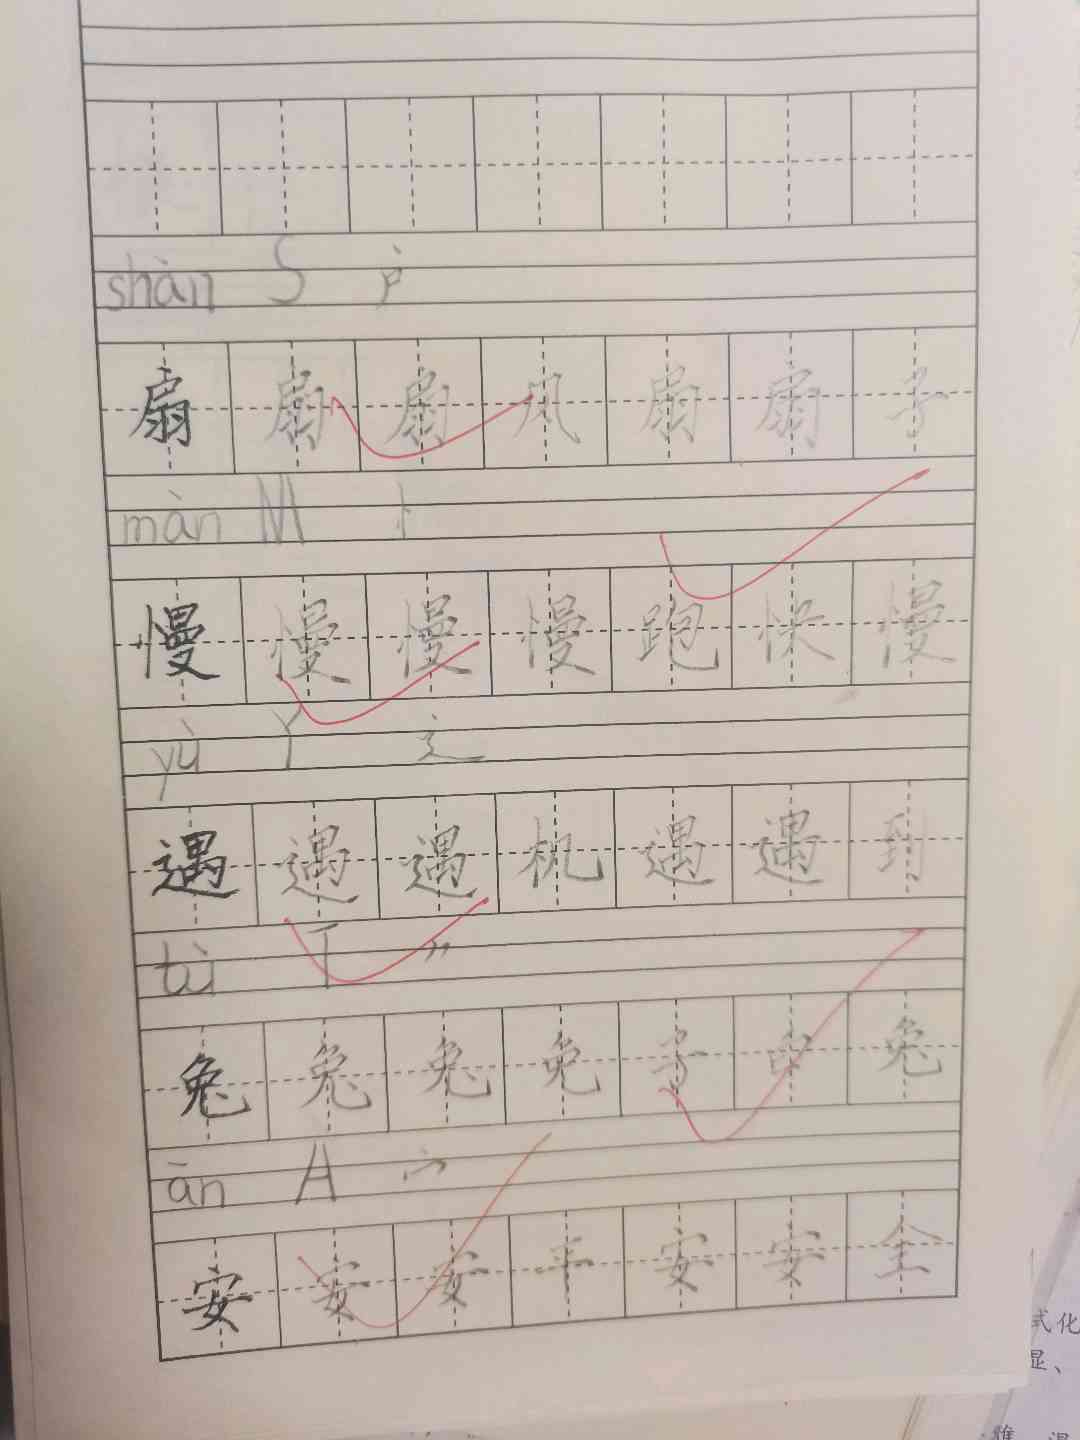 shàn S 户
扇扇扇风扇扇子
màn M 忄
慢慢慢慢跑快慢
yù Y 辶
遇遇遇机遇遇到
tù T 〃
兔兔兔兔子白兔
ān A 宀
安安安平安安全
式化
显、
雅